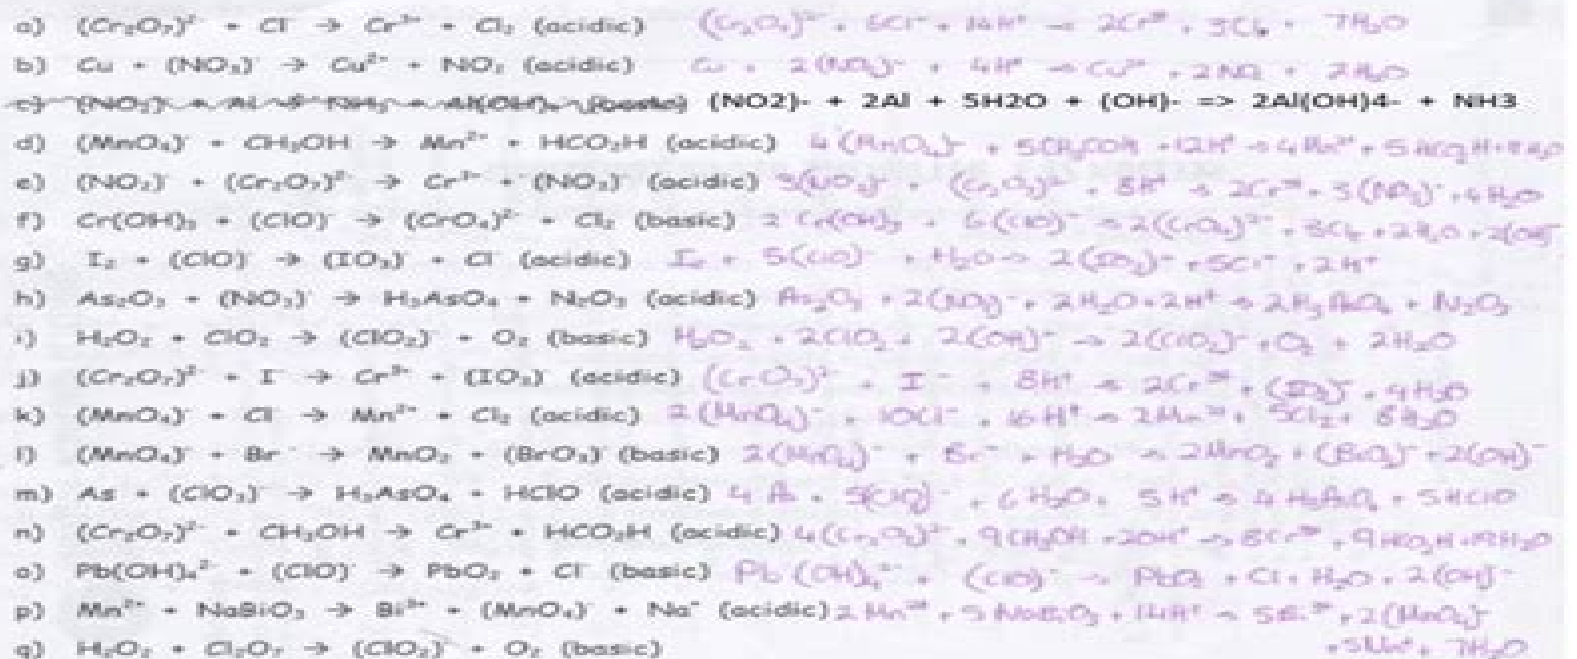 a) (Cr₂O₇)²⁻ + Cl⁻ → Cr³⁺ + Cl₂ (acidic) (Cr₂O₇)²⁻ + 6Cl⁻ + 14H⁺ → 2Cr³⁺ + 3Cl₂ + 7H₂O
b) Cu + (NO₃)⁻ → Cu²⁺ + NO₂ (acidic) Cu + 2(NO₃)⁻ + 4H⁺ → Cu²⁺ + 2NO₂ + 2H₂O
c) (NO₂)⁻ + Al → NH₃ + Al(OH)₄⁻ (basic) (NO2)- + 2Al + 5H2O + (OH)- => 2Al(OH)4- + NH3
d) (MnO₄)⁻ + CH₃OH → Mn²⁺ + HCO₂H (acidic) 4(MnO₄)⁻ + + 12H⁺ → 4Mn²⁺ + 5HCO₂H +
e) (NO₂)⁻ + (Cr₂O₇)²⁻ → Cr³⁺ + (NO₃)⁻ (acidic) 3(NO₂)⁻ + (Cr₂O₇)²⁻ + 8H⁺ → 2Cr³⁺ + 3(NO₃)⁻ + 4H₂O
f) Cr(OH)₃ + (ClO)⁻ → (CrO₄)²⁻ + Cl₂ (basic) 2Cr(OH)₃ + 6(ClO)⁻ → 2(CrO₄)²⁻ + 3Cl₂ + 2H₂O + 2(OH)⁻
g) I₂ + (ClO)⁻ → (IO₃)⁻ + Cl⁻ (acidic) I₂ + 5(ClO)⁻ + H₂O → 2(IO₃)⁻ + 5Cl⁻ + 2H⁺
h) As₂O₃ + (NO₃)⁻ → H₃AsO₄ + N₂O₃ (acidic) As₂O₃ + 2(NO₃)⁻ + 2H₂O + 2H⁺ → 2H₃AsO₄ + N₂O₃
i) H₂O₂ + ClO₂ → (ClO₂)⁻ + O₂ (basic) H₂O₂ + 2ClO₂ + 2(OH)⁻ → 2(ClO₂)⁻ + O₂ + 2H₂O
j) (Cr₂O₇)²⁻ + I⁻ → Cr³⁺ + (IO₃)⁻ (acidic) + I⁻ + 8H⁺ → 2Cr³⁺ + (IO₃)⁻ + 4H₂O
k) (MnO₄)⁻ + Cl⁻ → Mn²⁺ + Cl₂ (acidic) 2(MnO₄)⁻ + 10Cl⁻ + 16H⁺ → 2Mn²⁺ + 5Cl₂ + 8H₂O
l) (MnO₄)⁻ + Br⁻ → MnO₂ + (BrO₃)⁻ (basic) 2(MnO₄)⁻ + Br⁻ + H₂O → 2MnO₂ + (BrO₃)⁻ + 2(OH)⁻
m) As + (ClO₃)⁻ → H₃AsO₄ + HClO (acidic) 4As + 5(ClO₃)⁻ + 6H₂O + 5H⁺ → 4H₃AsO₄ + 5HClO
n) (Cr₂O₇)²⁻ + CH₃OH → Cr³⁺ + HCO₂H (acidic) 4(Cr₂O₇)²⁻ + 9CH₃OH + 20H⁺ → 8Cr³⁺ + 9HCO₂H + 19H₂O
o) Pb(OH)₄²⁻ + (ClO)⁻ → PbO₂ + Cl⁻ (basic) Pb(OH)₄²⁻ + (ClO)⁻ → PbO₂ + Cl + H₂O + 2(OH)⁻
p) Mn²⁺ + NaBiO₃ → Bi³⁺ + (MnO₄)⁻ + Na⁺ (acidic) 2Mn²⁺ + 5NaBiO₃ + 14H⁺ → 5Bi³⁺ + 2(MnO₄)⁻
+ 5Na⁺ + 7H₂O
q) H₂O₂ + Cl₂O₇ → (ClO₂)⁻ + O₂ (basic)